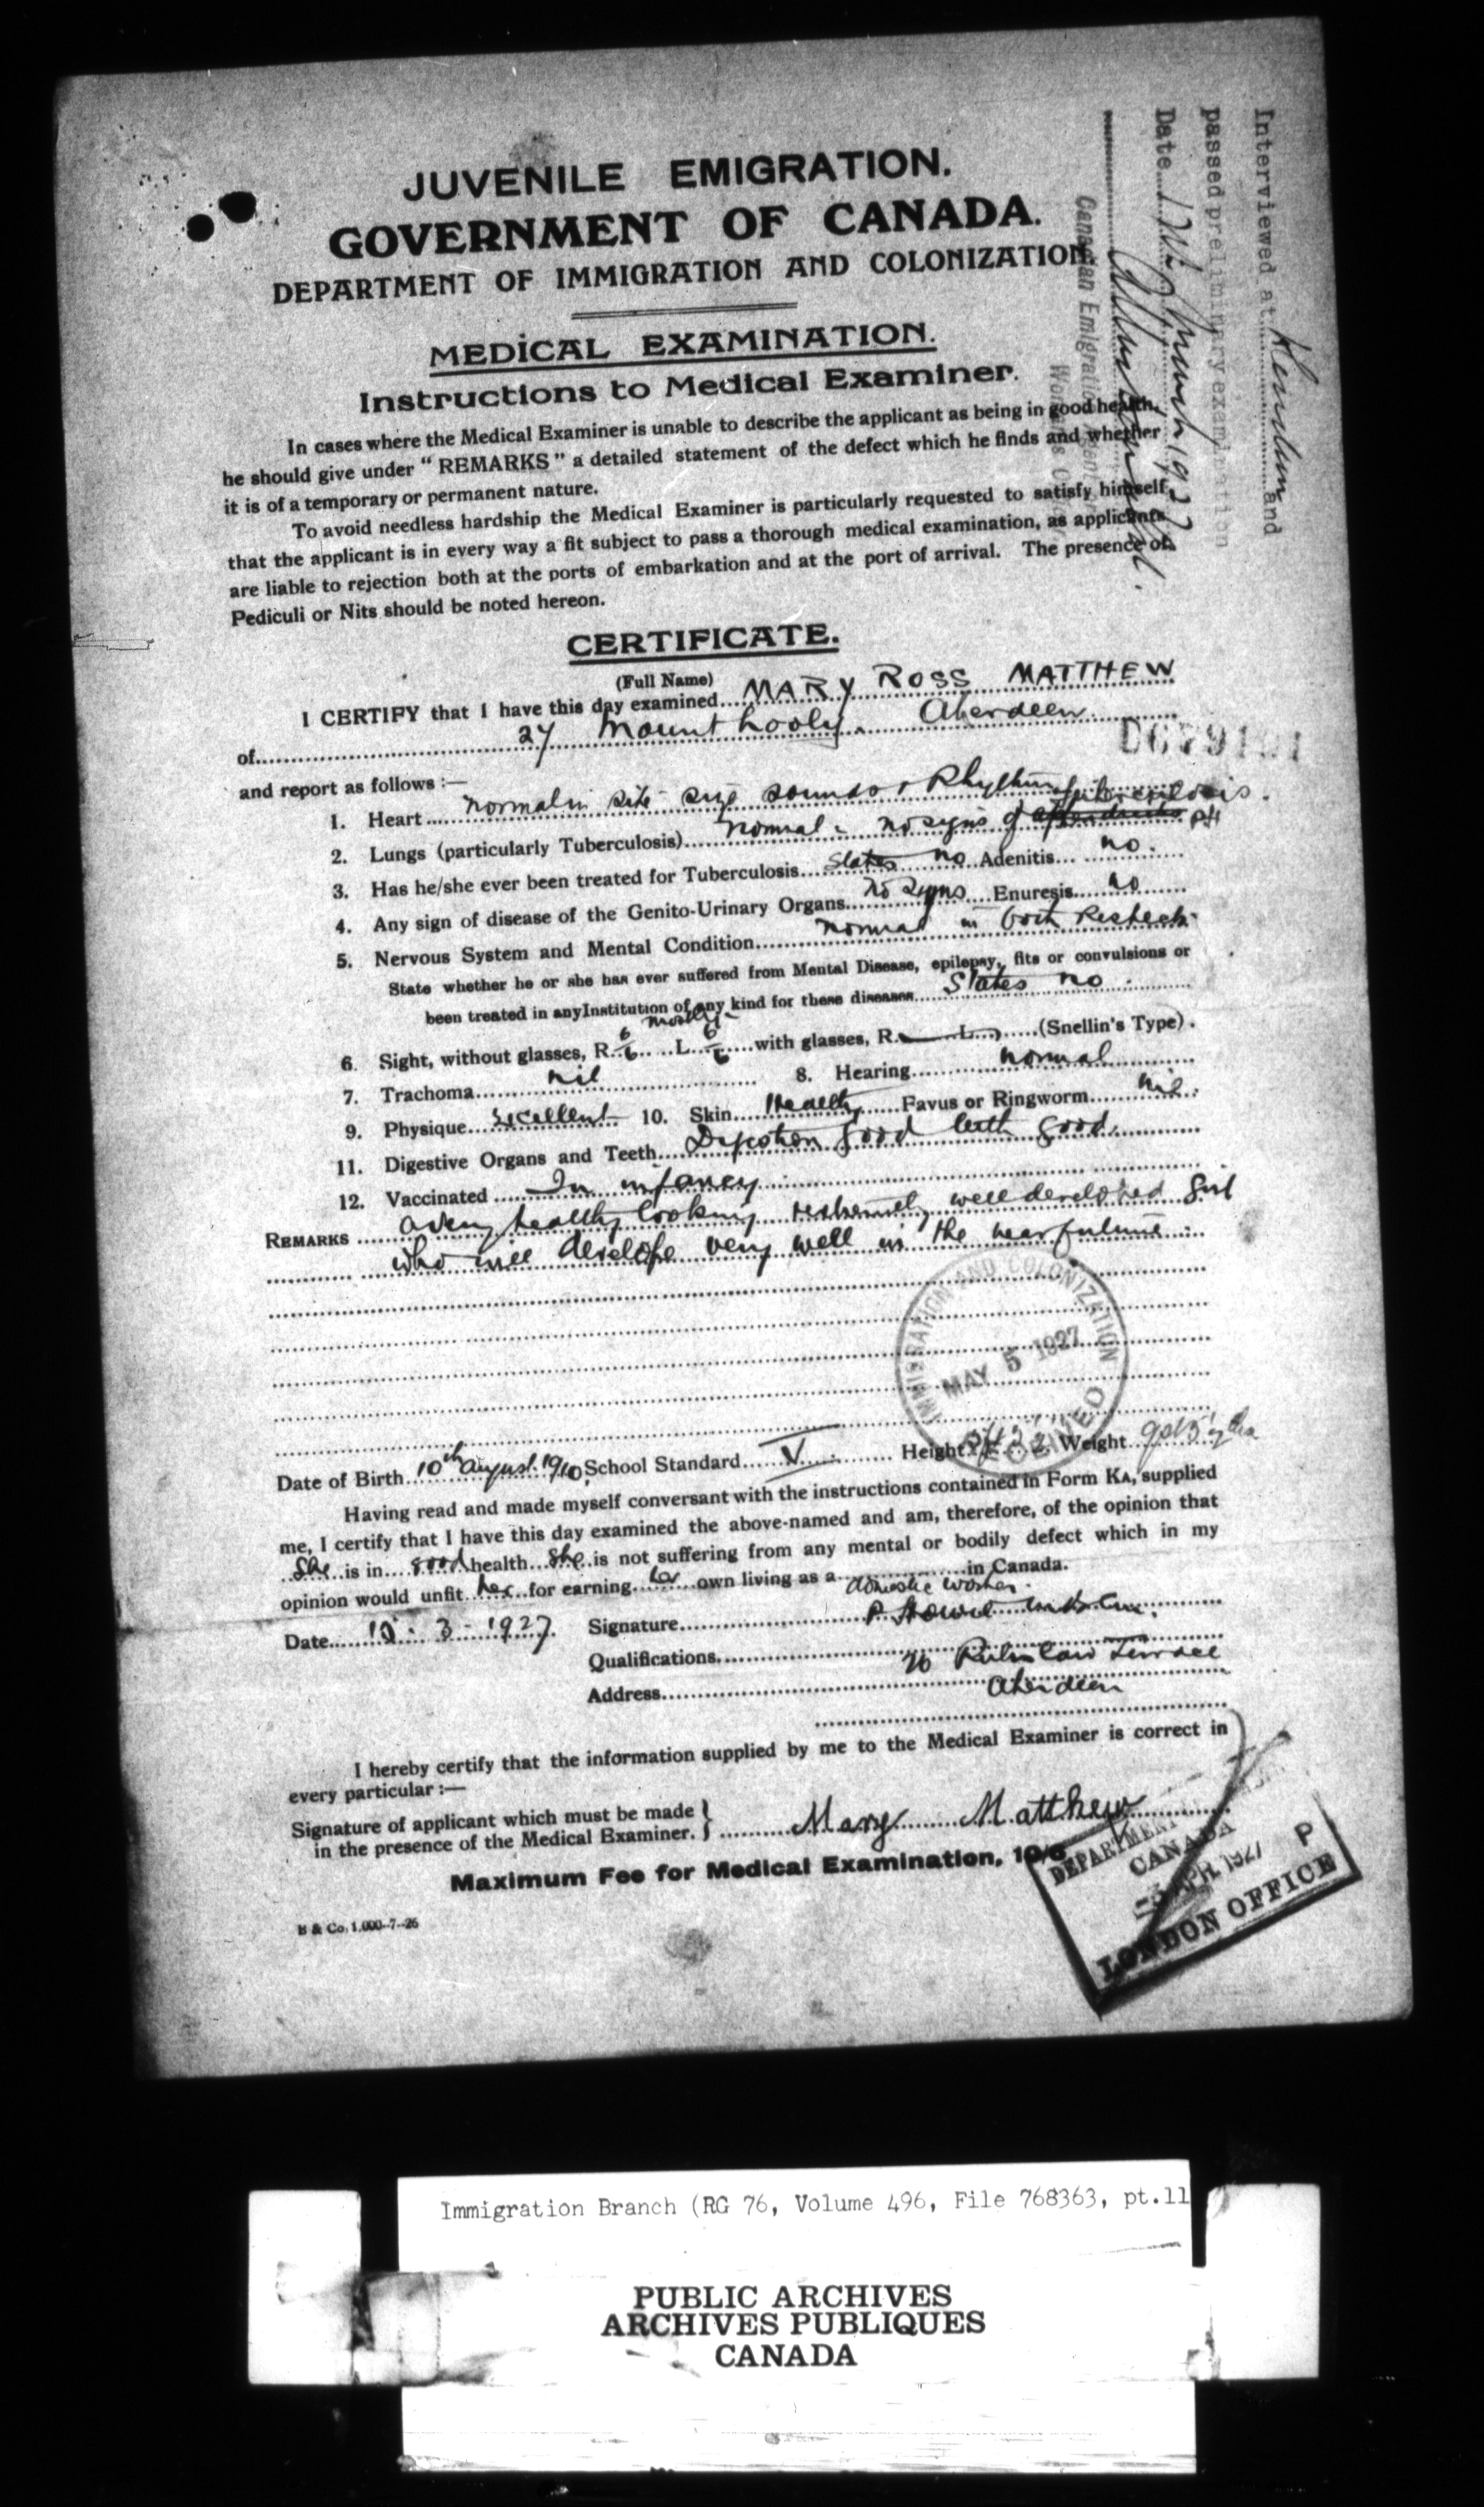 JUVENILE EMIGRATION.
GOVERNMENT OF CANADA.
DEPARTMENT OF IMMIGRATION AND COLONIZATION.
MEDICAL EXAMINATION.
Instructions to Medical Examiner.
In cases where the Medical Examiner is unable to describe the applicant as being in good health,
he should give under "REMARKS" a detailed statement of the defect which he finds and whether
it is of a temporary or permanent nature.
To avoid needless hardship the Medical Examiner is particularly requested to satisfy himself
that the applicant is in every way a fit subject to pass a thorough medical examination, as applicants
are liable to rejection both at the ports of embarkation and at the port of arrival. The presence of
Pediculi or Nits should be noted hereon.
Interviewed at and
passed preliminary examination
Date 1927
Canadian Emigration
CERTIFICATE.
(Full Name)
I CERTIFY that I have this day examined MARY ROSS MATTHEW
of 27 Mount hooly. Aberdeen
and report as follows :—
1. Heart normal in site size sounds & Rhythm
2. Lungs (particularly Tuberculosis) normal - no signs of tuberculosis. PH
3. Has he/she ever been treated for Tuberculosis States no Adenitis no.
4. Any sign of disease of the Genito-Urinary Organs no signs Enuresis no
5. Nervous System and Mental Condition normal in both Respects
State whether he or she has ever suffered from Mental Disease, epilepsy, fits or convulsions or
been treated in any Institution of any kind for these diseases States no.
6. Sight, without glasses, R. 6/6 L. 6/6 with glasses, R. L. (Snellin's Type).
7. Trachoma nil 8. Hearing normal
9. Physique excellent 10. Skin Healthy Favus or Ringworm nil.
11. Digestive Organs and Teeth Digestion good teeth good.
12. Vaccinated In infancy
REMARKS a very healthy looking extremely well developed girl
who will develope very well in the near future
IMMIGRATION AND COLONIZATION
MAY 5 1927
RECEIVED
Date of Birth 10th August 1910. School Standard V Height Weight
Having read and made myself conversant with the instructions contained in Form KA, supplied
me, I certify that I have this day examined the above-named and am, therefore, of the opinion that
She is in good health She is not suffering from any mental or bodily defect which in my
opinion would unfit her for earning her own living as a domestic worker. in Canada.
Date 15 - 3 - 1927. Signature P Howie M.B. C.M.
Qualifications
Address 76 Rubislaw Terrace
Aberdeen
I hereby certify that the information supplied by me to the Medical Examiner is correct in
every particular :—
Signature of applicant which must be made
in the presence of the Medical Examiner. } Mary Matthew
Maximum Fee for Medical Examination, 10/6
B & Co. 1,000-7-26
DEPARTMENT
CANADA
APR 1927 P
LONDON OFFICE
Immigration Branch (RG 76, Volume 496, File 768363, pt.11
PUBLIC ARCHIVES
ARCHIVES PUBLIQUES
CANADA